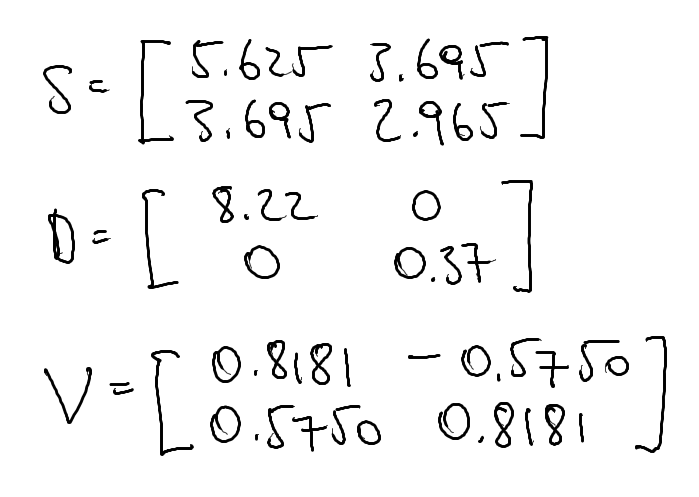 S = [ 5.625 3.695
3.695 2.965 ]
D = [ 8.22 0
0 0.37 ]
V = [ 0.8181 -0.5750
0.5750 0.8181 ]